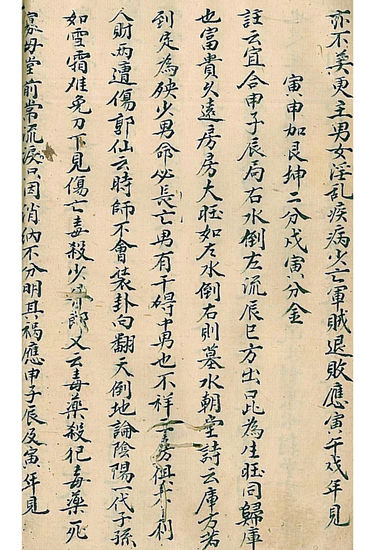 亦不美更主男女淫乱疾病少亡軍賊退敗應寅午戌年見
寅申加艮坤二分戊寅分金
註云宜合申子辰局右水倒左流辰巳方出是為生旺同歸庫
也富貴久遠房房大旺如左水倒右則墓水朝堂詩云庫方若
到定為殃少男命必長亡男有干碍中男也不祥房俱不利
人財両遭傷郭仙云時師不會装卦向翻天倒地論陰陽一代子孫
如雪霜难免刀下見傷亡毒殺少郎又云毒藥殺犯毒藥死
寡母堂前常流淚只因消納不分明其禍應申子辰及寅年見